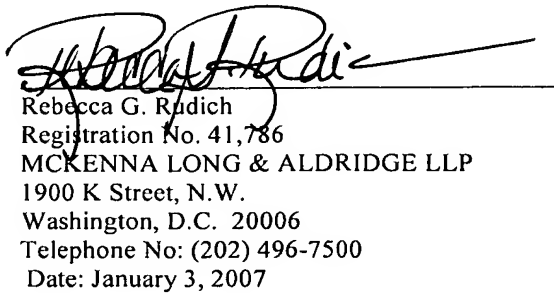 Rebecca G. Rudich
Rebecca G. Rudich
Registration No. 41,786
MCKENNA LONG & ALDRIDGE LLP
1900 K Street, N.W.
Washington, D.C. 20006
Telephone No: (202) 496-7500
Date: January 3, 2007